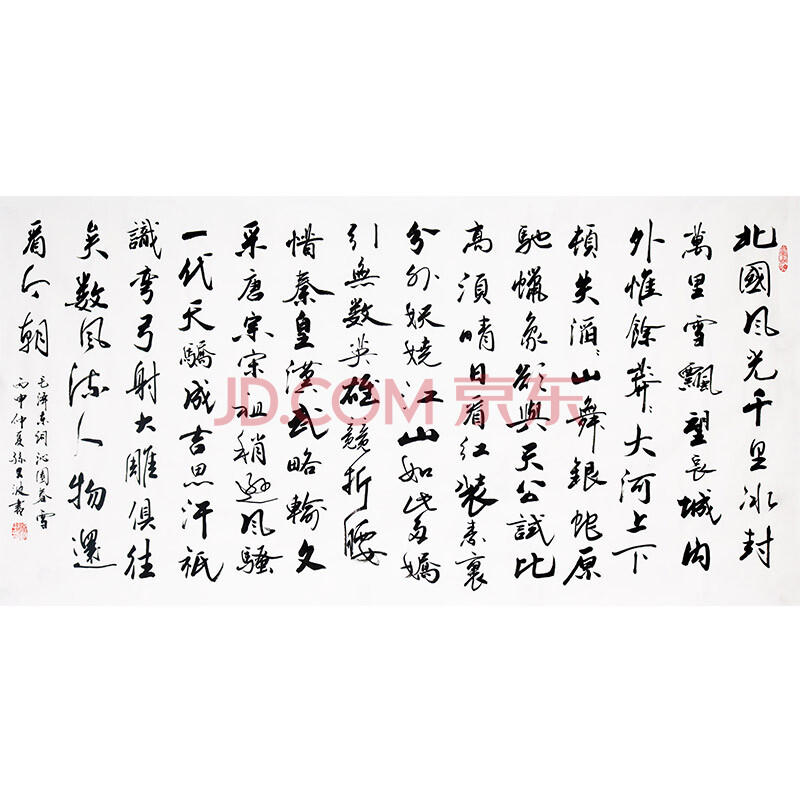 北國风光千里冰封
萬里雪飄望長城内
外惟餘莽々大河上下
頓失滔々山舞銀蛇原
馳蠟象欲與天公試比
高須晴日看紅裝素裹
分外妖嬈江山如此多嬌
引無数英雄競折腰
惜秦皇漢武略輸文
采唐宗宋祖稍遜风騷
一代天驕成吉思汗祇
識彎弓射大雕俱往
矣数风流人物還
看今朝
毛澤東詞沁園春雪
丙申仲夏孫波書
JD.COM 京东